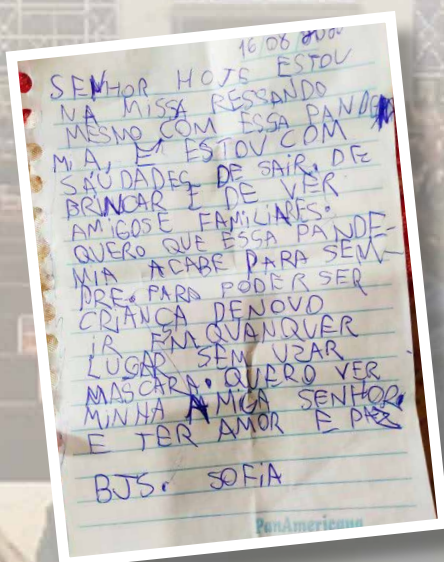 16/08/2020
SENHOR HOJE ESTOU
NA MISSA RESSANDO
MESMO COM ESSA PANDE
MIA, E ESTOU COM
SAUDADES DE SAIR, DE
BRINCAR E DE VER
AMIGOS E FAMILIARES.
QUERO QUE ESSA PANDE-
MIA ACABE PARA SEM-
PRE. PARA PODER SER
CRIANÇA DENOVO
IR EM QUANQUER
LUGAR SEM UZAR
MASCARA. QUERO VER
MINHA AMIGA SENHOR,
E TER AMOR E PAZ
BJS. SOFIA
PanAmericana